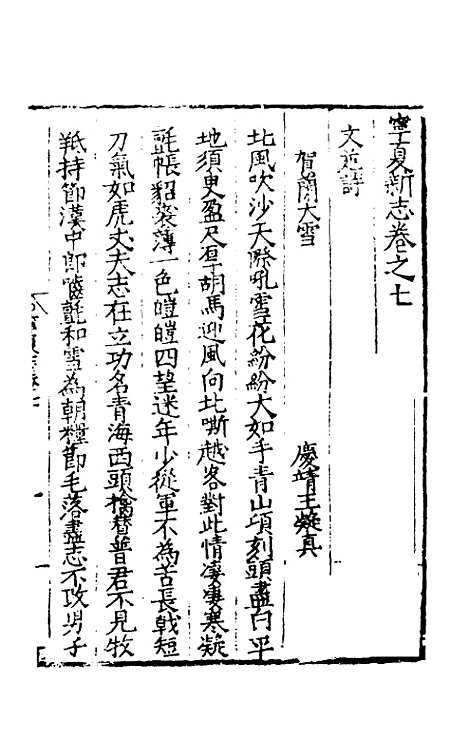 寧夏新志卷之七
文苑詩
賀蘭大雪 慶靖王凝真
北風吹沙天際吼雪花紛紛大如手青山頃刻頭盡白平
地須臾盈尺厚胡馬迎風向北嘶越客對此情凄凄寒凝
氈帳貂裘薄一色皚皚四望迷年少從軍不為苦長戟短
刀氣如虎丈夫志在立功名青海西頭擒贊普君不見牧
羝持節漢中郎嚙氈和雪為朝糧節毛落盡志不改男子